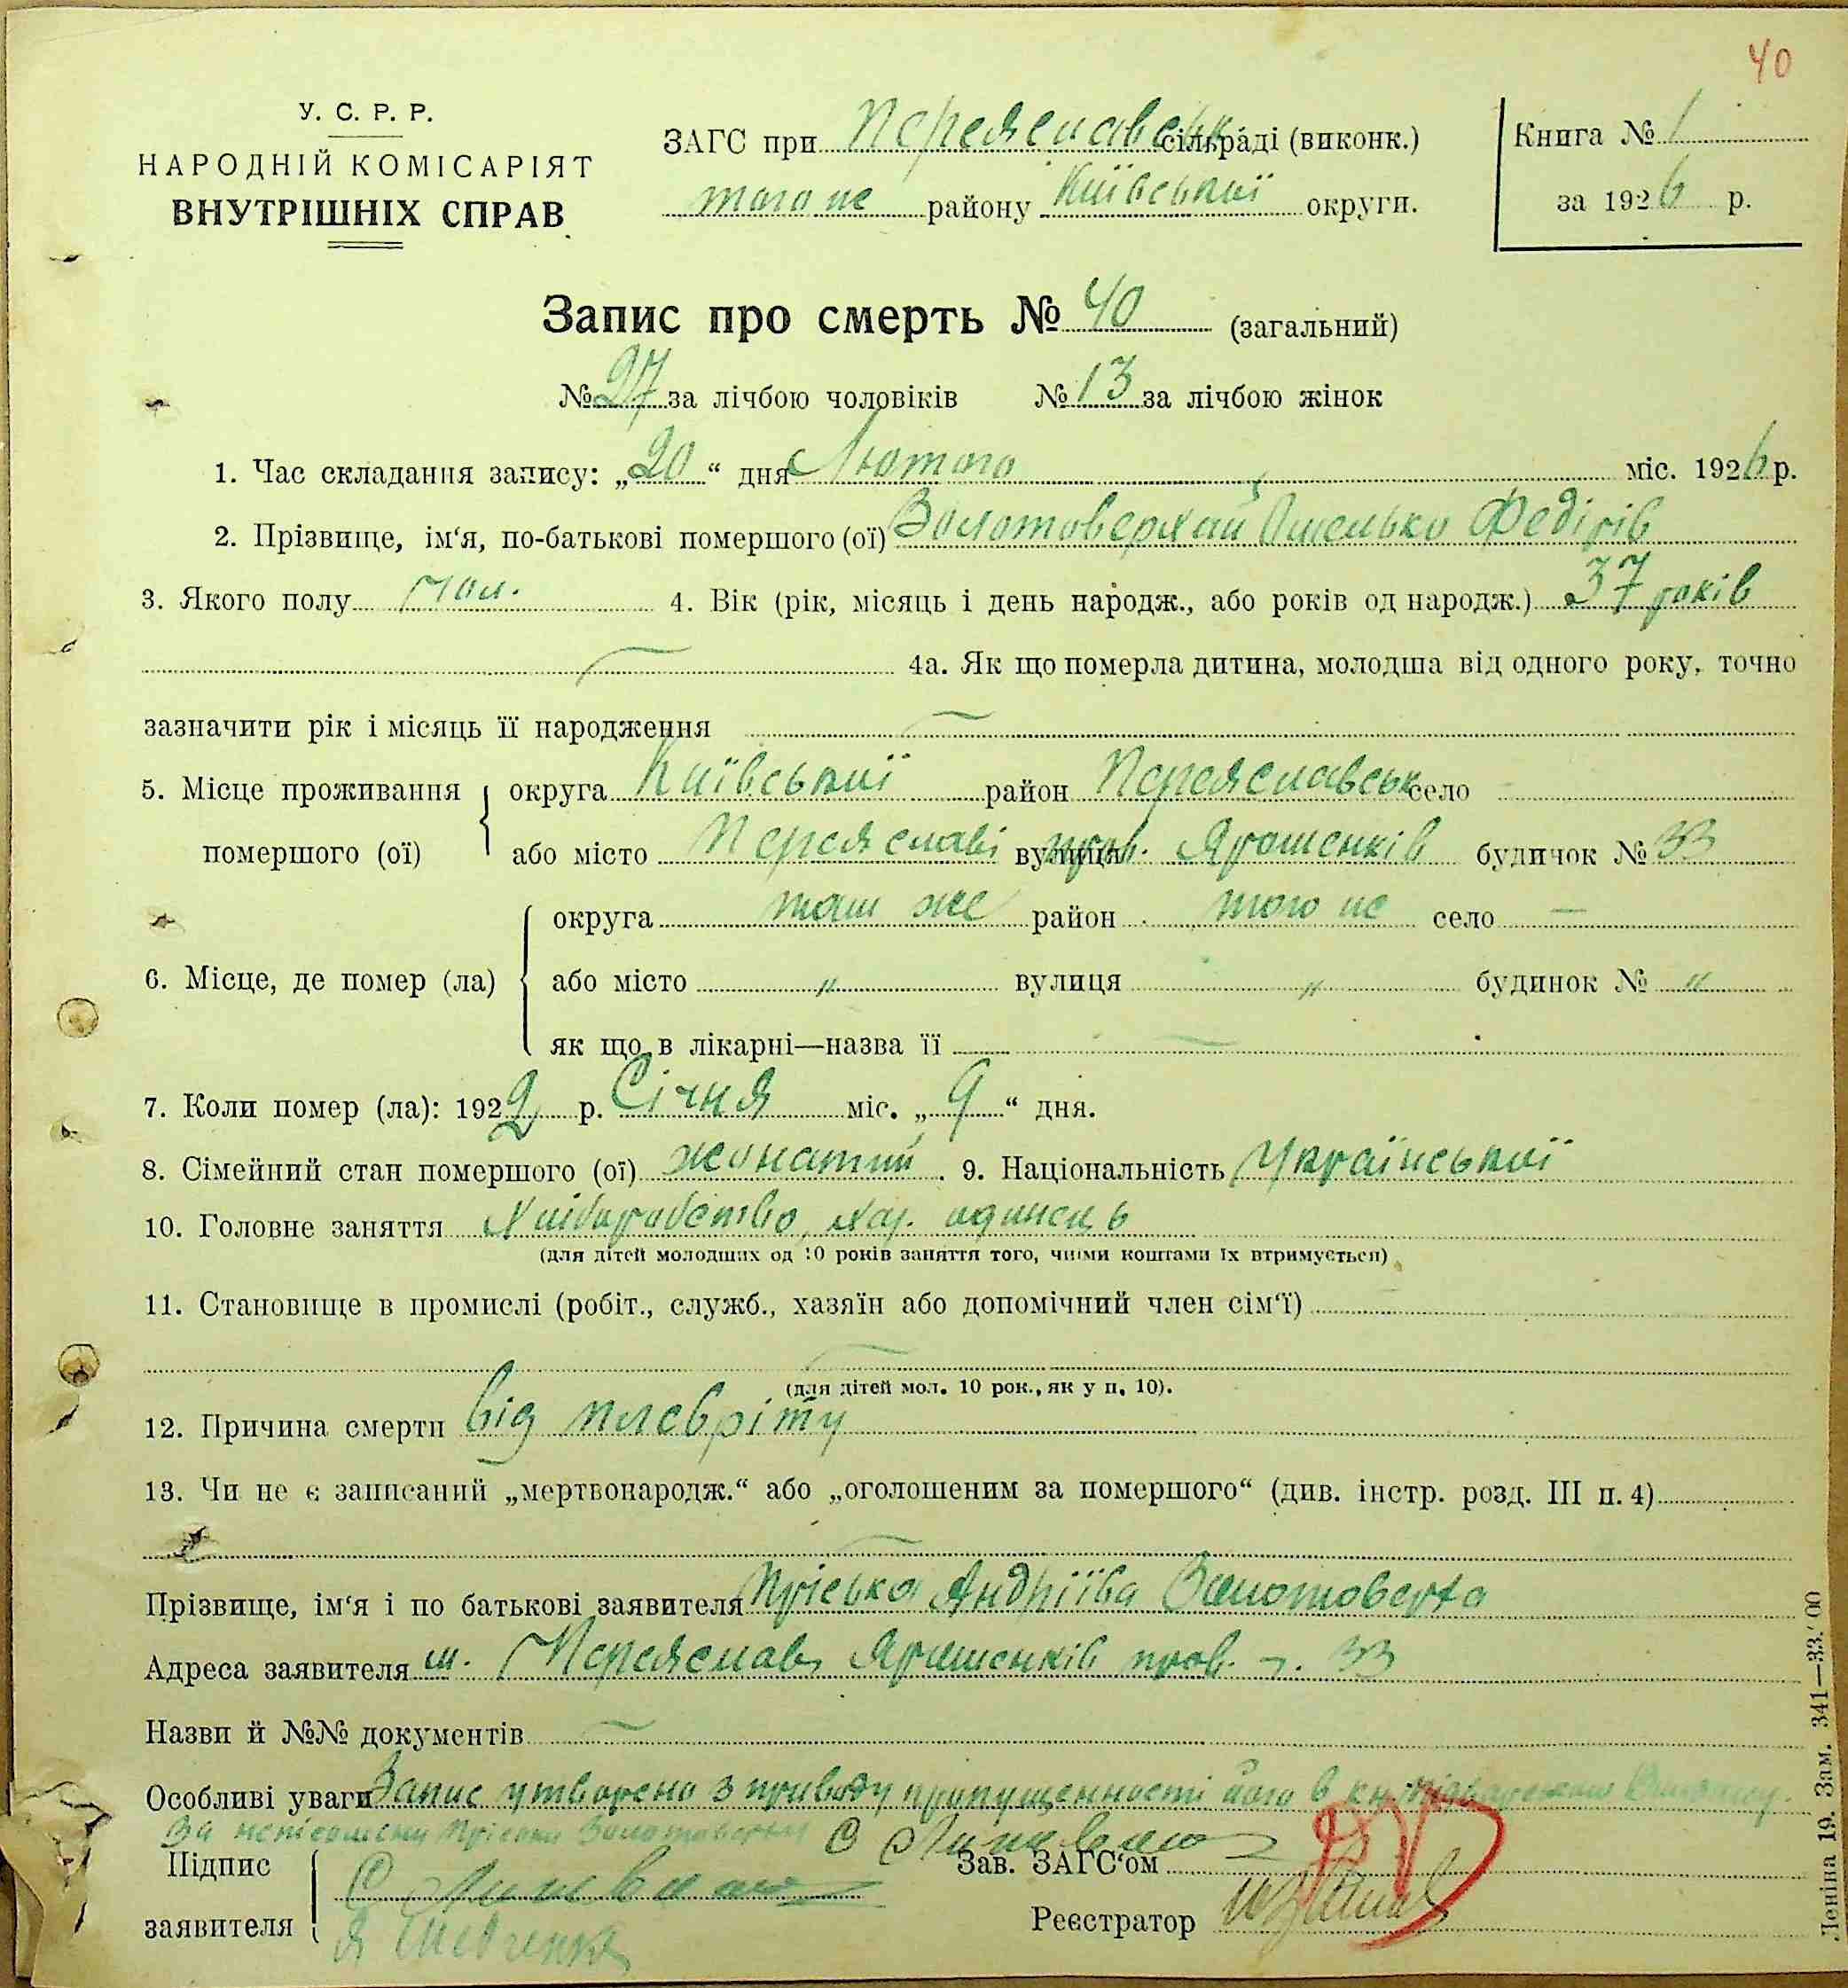 40
У. С. Р. Р.
НАРОДНІЙ КОМІСАРІЯТ
ВНУТРІШНІХ СПРАВ
ЗАГС при Переяславськ сільраді (виконк.)
того же району Київської округи.
Книга № 1
за 1926 р.
Запис про смерть № 40 (загальний)
№ 27 за лічбою чоловіків № 13 за лічбою жінок
1. Час складання запису: „20“ дня Лютого міс. 1926 р.
2. Прізвище, ім‘я, по-батькові помершого (ої) Золотоверхий Омелько Федірів
3. Якого полу чол. 4. Вік (рік, місяць і день народж., або років од народж.) 37 років
4а. Як що померла дитина, молодша від одного року, точно
зазначити рік і місяць її народження
5. Місце проживання помершого (ої) округа Київської район Переяславськ село
або місто Переяславі вулиця пров. Ярошенків будинок № 33
6. Місце, де помер (ла) округа там же район того же село —
або місто " вулиця " будинок № "
як що в лікарні—назва її
7. Коли помер (ла): 1922 р. Січня міс. „9“ дня.
8. Сімейний стан помершого (ої) жонатий. 9. Національність Української
10. Головне заняття Хліборобство, хар. одинець
(для дітей молодших од 10 років заняття того, чиїми коштами їх втримується)
11. Становище в промислі (робіт., служб., хазяїн або допомічний член сім‘ї)
(для дітей мол. 10 рок., як у п. 10).
12. Причина смерти від плевріту
13. Чи не є записаний „мертвонародж.“ або „оголошеним за помершого“ (див. інстр. розд. III п. 4)
Прізвище, ім‘я і по батькові заявителя Пріська Андріїва Золотоверха
Адреса заявителя м. Переяслав, Ярошенків пров. ч. 33
Назви й №№ документів
Особливі уваги Запис утворено з приводу пропущенности його в кн.
За неписьмену Пріську Золотоверху
Підпис заявителя
Я Шевченко
Зав. ЗАГС‘ом
Реєстратор
Леніна 19. Зам. 341—33.000